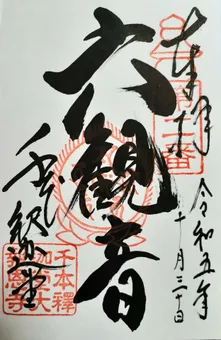 奉拝
令和五年
十月三十日
六観音
千本釈迦堂
千本釋
迦堂大
報恩寺